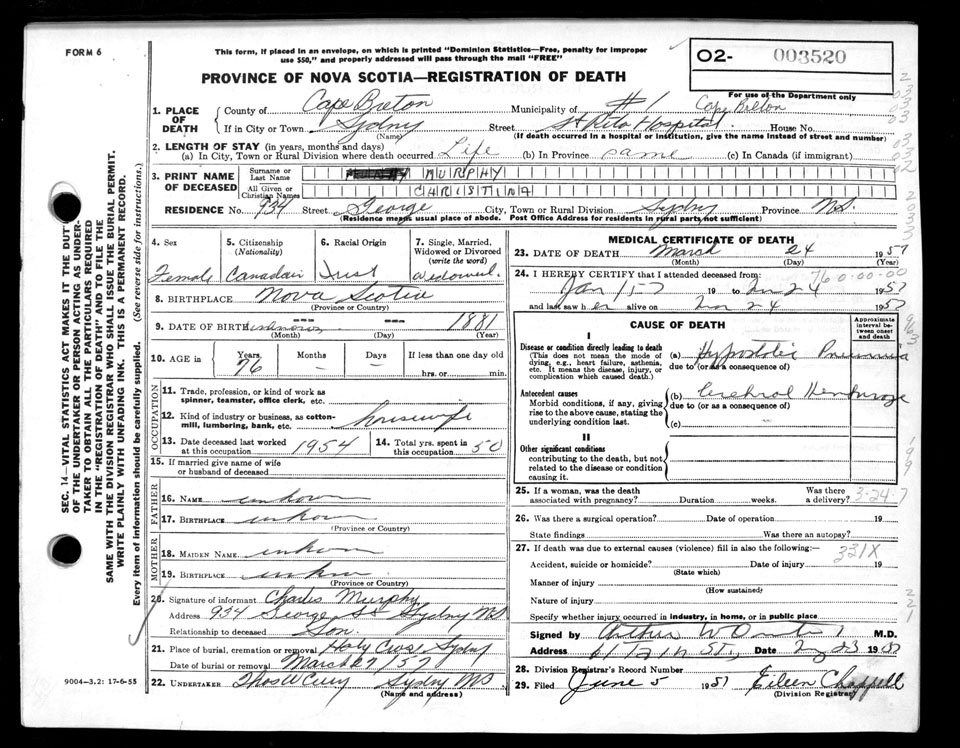 FORM 6
This form, if placed in an envelope, on which is printed "Dominion Statistics—Free, penalty for improper
use $50," and properly addressed will pass through the mail "FREE"
O2- 003520
PROVINCE OF NOVA SCOTIA—REGISTRATION OF DEATH
For use of the Department only
1. PLACE OF DEATH
County of Cape Breton Municipality of #1 Cape Breton
If in City or Town Sydney Street St Rita Hospital House No.
(Name) (If death occurred in a hospital or institution, give the name instead of street and number)
2. LENGTH OF STAY (in years, months and days)
(a) In City, Town or Rural Division where death occurred Life (b) In Province same (c) In Canada (if immigrant)
3. PRINT NAME OF DECEASED
Surname or Last Name MURPHY
All Given or Christian Names CHRISTINA
RESIDENCE No. 934 Street George City, Town or Rural Division Sydney Province NS.
(Residence means usual place of abode. Post Office Address for residents in rural parts not sufficient)
4. Sex
Female
5. Citizenship
(Nationality)
Canadian
6. Racial Origin
7. Single, Married,
Widowed or Divorced
(write the word)
widowed
8. BIRTHPLACE Nova Scotia
(Province or Country)
9. DATE OF BIRTH unknown --- -- 1881
(Month) (Day) (Year)
10. AGE in
Years Months Days If less than one day old
76 - - hrs. or min.
OCCUPATION
11. Trade, profession, or kind of work as
spinner, teamster, office clerk, etc.
12. Kind of industry or business, as cotton-
mill, lumbering, bank, etc. housewife
13. Date deceased last worked
at this occupation 1954
14. Total yrs. spent in
this occupation 50
15. If married give name of wife
or husband of deceased
FATHER
16. NAME unkown
17. BIRTHPLACE unkown
(Province or Country)
MOTHER
18. MAIDEN NAME unkown
19. BIRTHPLACE unkown
(Province or Country)
20. Signature of informant Charles Murphy
Address 934 George St Sydney NS
Relationship to deceased Son.
21. Place of burial, cremation or removal Holy Cross Sydney
Date of burial or removal March 27/57
22. UNDERTAKER Thos W Curry Sydney NS
(Name and address)
MEDICAL CERTIFICATE OF DEATH
23. DATE OF DEATH March 24 1957
(Month) (Day) (Year)
760-00-00
24. I HEREBY CERTIFY that I attended deceased from:
Jan 1 57 19 to 24 1957
and last saw her alive on 24 1957
CAUSE OF DEATH
Approximate
interval be-
tween onset
and death
I
Disease or condition directly leading to death
(This does not mean the mode of
dying, e.g., heart failure, asthenia,
etc. It means the disease, injury, or
complication which caused death.)
(a) Hypostatic Pneumonia
due to (or as a consequence of)
Antecedent causes
Morbid conditions, if any, giving
rise to the above cause, stating the
underlying condition last.
(b) Cerebral Hemorrhage
due to (or as a consequence of)
(c)
II
Other significant conditions
contributing to the death, but not
related to the disease or condition
causing it.
25. If a woman, was the death
associated with pregnancy? Duration weeks. Was there
a delivery? 3-24-7
26. Was there a surgical operation? Date of operation 19
State findings Was there an autopsy?
27. If death was due to external causes (violence) fill in also the following:— 331X
Accident, suicide or homicide? Date of injury 19
(State which)
Manner of injury
(How sustained)
Nature of injury
Specify whether injury occurred in industry, in home, or in public place
Signed by Arthur W M.D.
Address Date 23 1957
28. Division Registrar's Record Number
29. Filed June 5 1957 Eileen Chappell
(Division Registrar)
9004—3.2: 17-6-55
SEC. 14—VITAL STATISTICS ACT MAKES IT THE DUTY
OF THE UNDERTAKER OR PERSON ACTING AS UNDER-
TAKER TO OBTAIN ALL THE PARTICULARS REQUIRED
IN THE "REGISTRATION OF DEATH" AND TO FILE THE
SAME WITH THE DIVISION REGISTRAR WHO SHALL ISSUE THE BURIAL PERMIT.
WRITE PLAINLY WITH UNFADING INK. THIS IS A PERMANENT RECORD.
Every item of information should be carefully supplied. (See reverse side for instructions.)